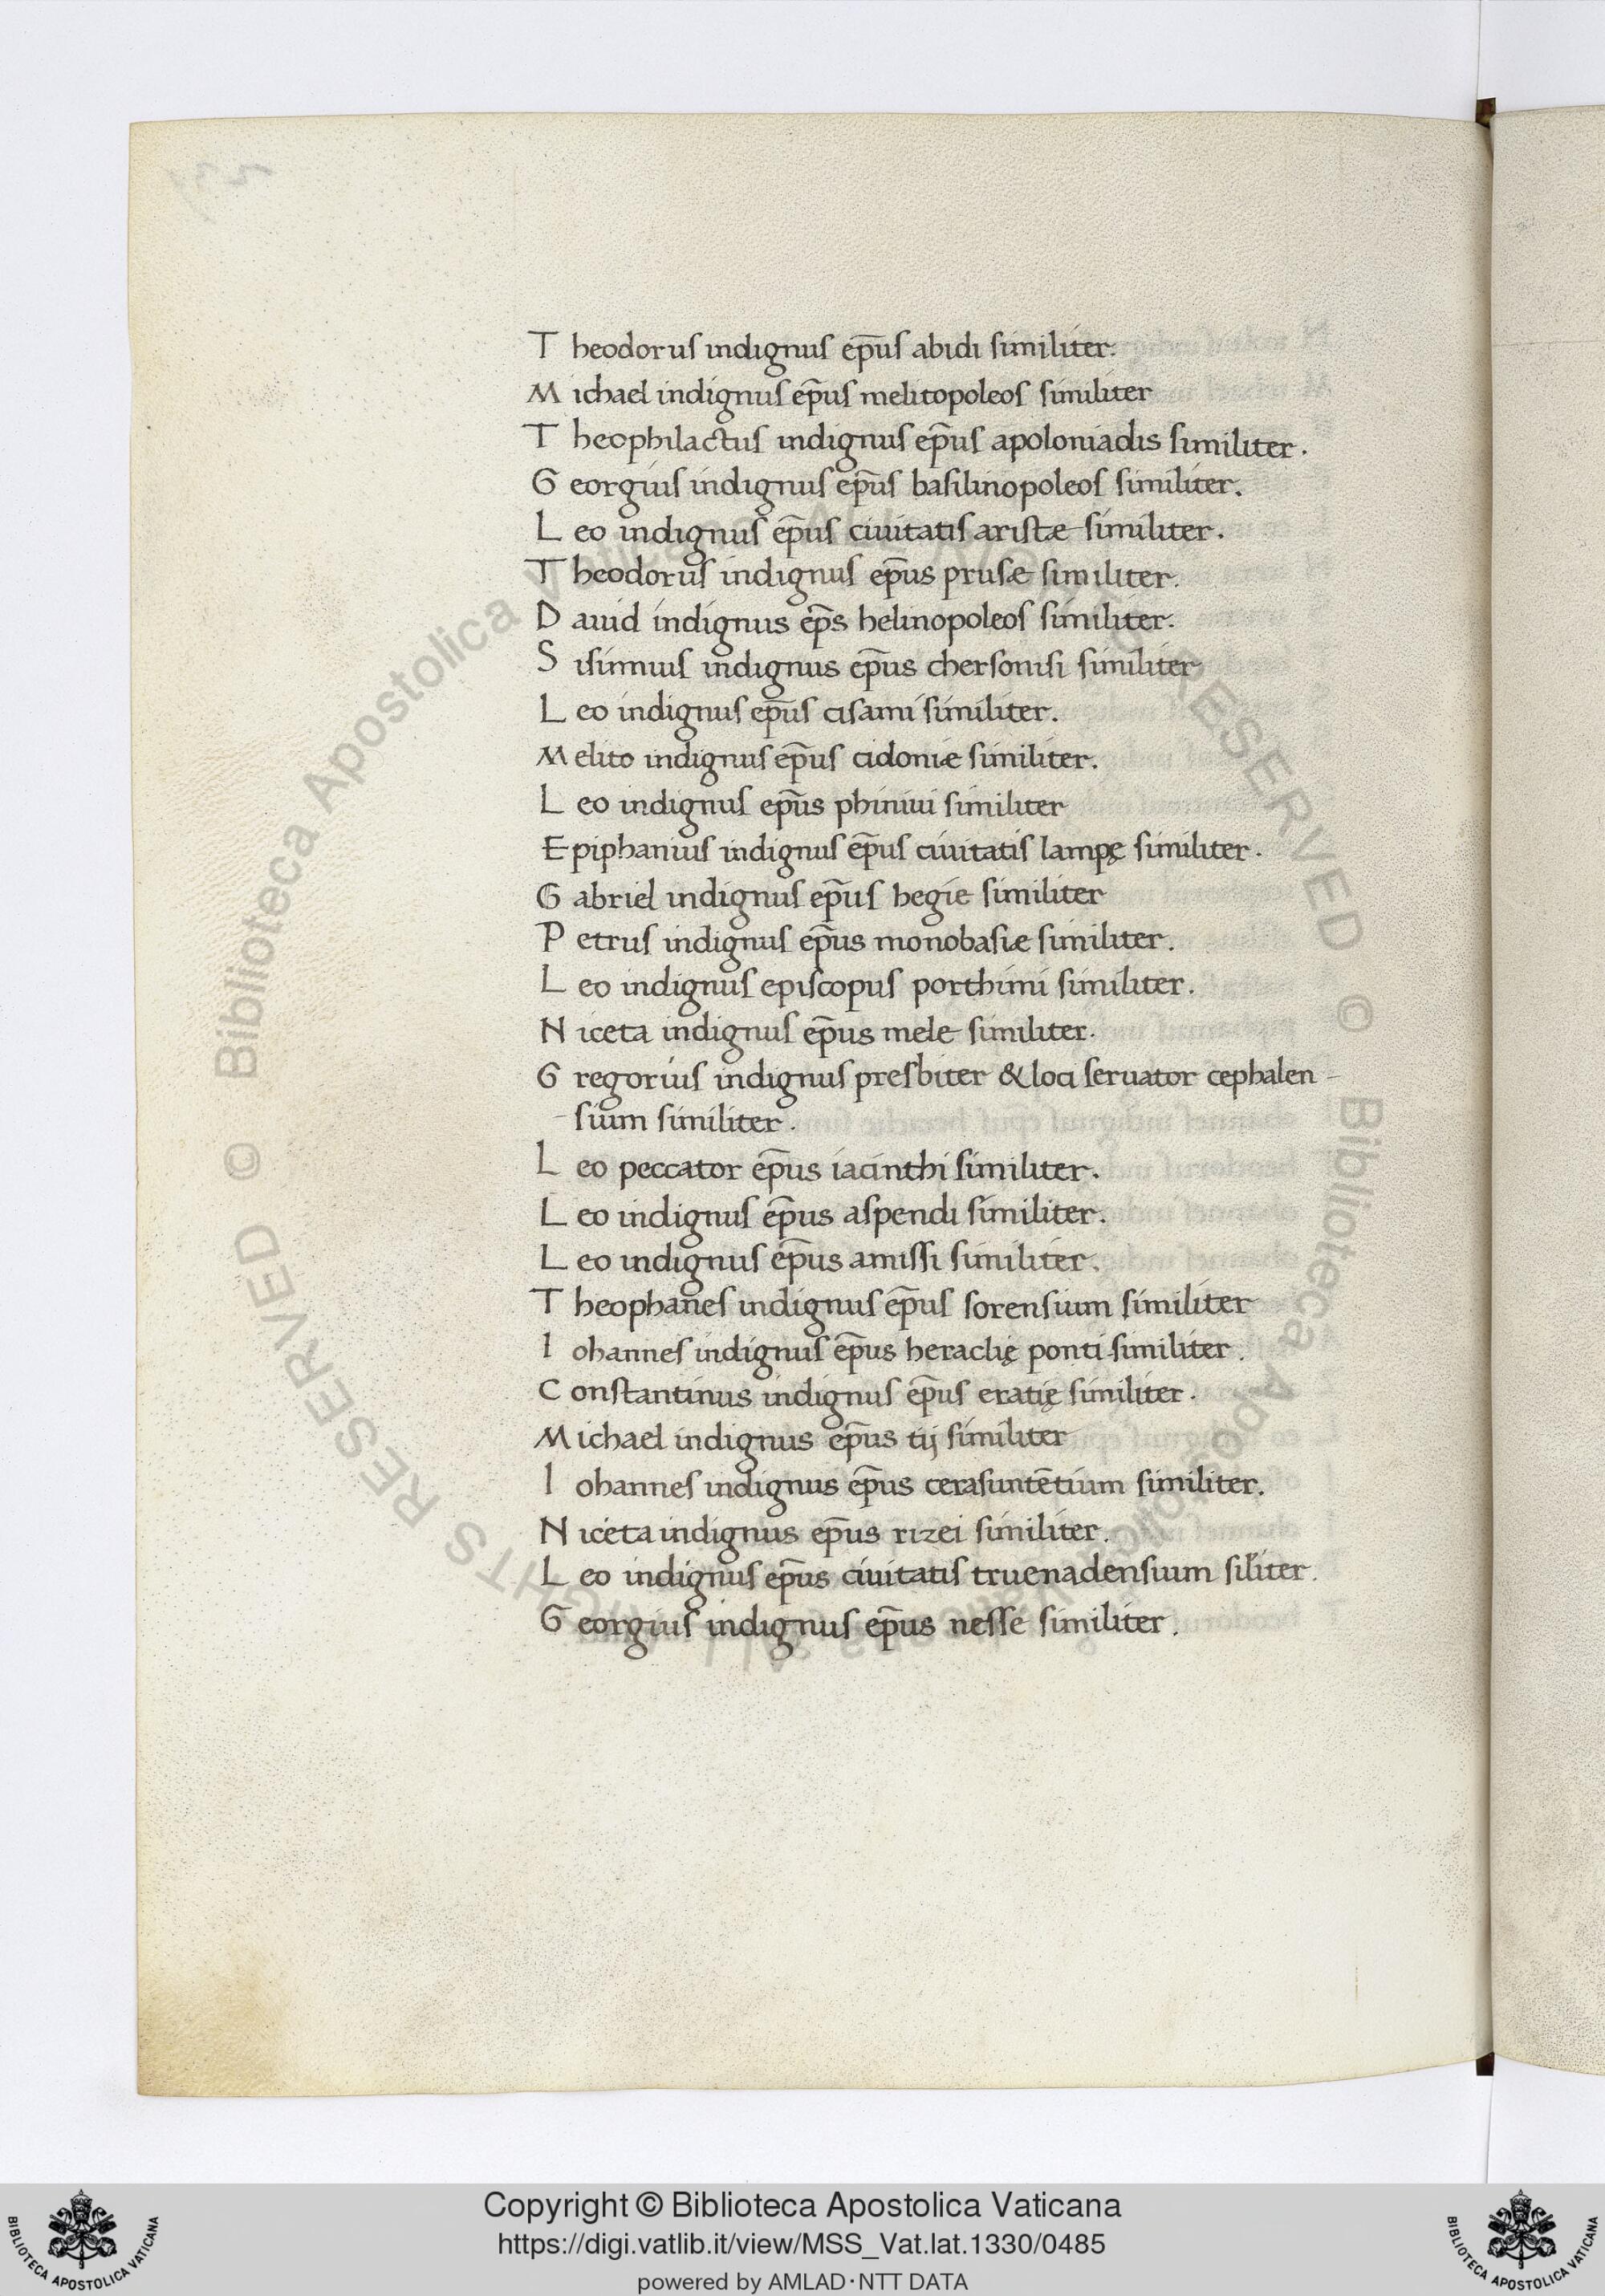 Theodorus indignus ep̄us abidi similiter.
Michael indignus ep̄us melitopoleos similiter
Theophilactus indignus ep̄us apoloniadis similiter.
Georgius indignus ep̄us basilinopoleos similiter.
Leo indignus ep̄us ciuitatis aristæ similiter.
Theodorus indignus ep̄us prusæ similiter.
Dauid indignus ep̄s helinopoleos similiter.
Sisinnius indignus ep̄us chersonisi similiter
Leo indignus ep̄us cisami similiter.
Melito indignus ep̄us cidoniæ similiter.
Leo indignus ep̄us phiniui similiter
Epiphanius indignus ep̄us ciuitatis lampę similiter.
Gabriel indignus ep̄us hegie similiter
Petrus indignus ep̄us monobasiæ similiter.
Leo indignus episcopus porthimi similiter.
Niceta indignus ep̄us mele similiter.
Gregorius indignus presbiter & loci seruator cephalen-
-sium similiter.
Leo peccator ep̄us iacinthi similiter.
Leo indignus ep̄us aspendi similiter.
Leo indignus ep̄us amissi similiter.
Theophanes indignus ep̄us sorensium similiter
Iohannes indignus ep̄us heraclię ponti similiter.
Constantinus indignus ep̄us eratię similiter.
Michael indignus ep̄us tij similiter
Iohannes indignus ep̄us cerasuntētium similiter.
Niceta indignus ep̄us rizei similiter.
Leo indignus ep̄us ciuitatis truenadensium sil̄iter.
Georgius indignus ep̄us nesse similiter.
© Biblioteca Apostolica Vaticana ALL RIGHTS RESERVED
© Biblioteca Apostolica Vaticana ALL RIGHTS RESERVED
Copyright © Biblioteca Apostolica Vaticana
https://digi.vatlib.it/view/MSS_Vat.lat.1330/0485
powered by AMLAD·NTT DATA
BIBLIOTECA APOSTOLICA VATICANA
BIBLIOTECA APOSTOLICA VATICANA